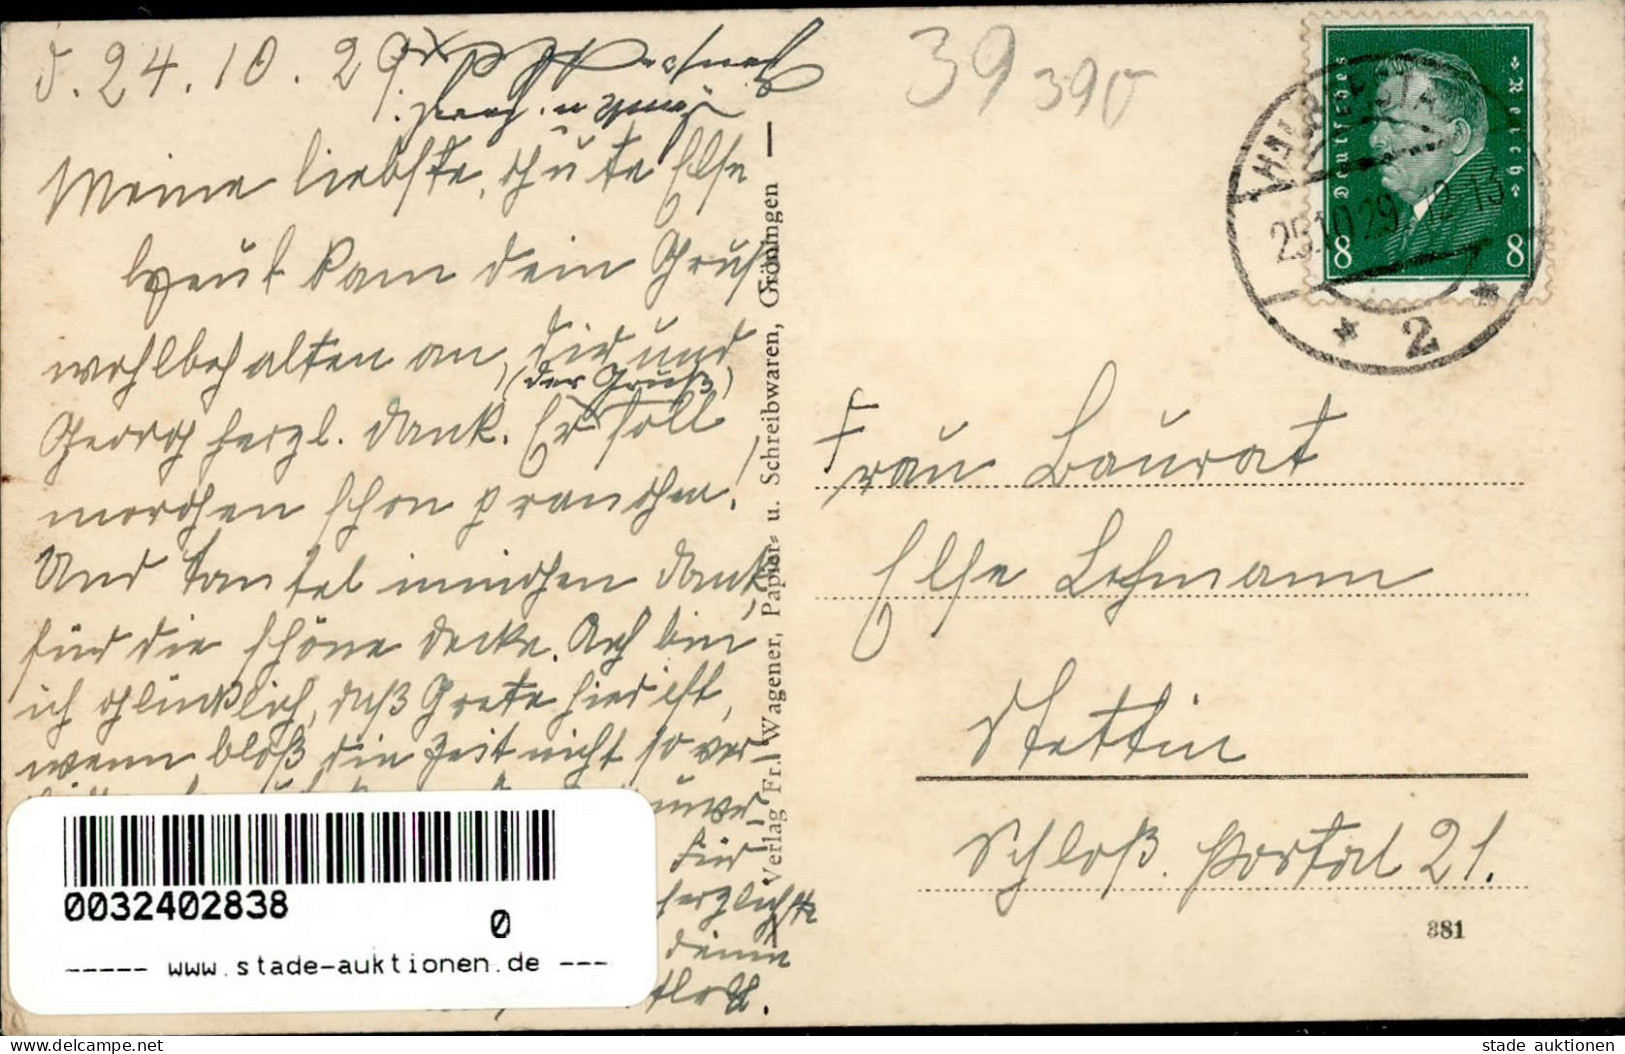 d. 24.10.29.
Meine liebste, gute Else
Heut kam dein Gruß
wohlbehalten an, dir und
(der Gruß)
Georg herzl. Dank. Er soll
morgen schon prangen!
Und Tantel innigen Dank
für die schöne Decke. Ach bin
ich glücklich, daß Grete hier ist,
wenn bloß die Zeit nicht so ver-
für
herzlichste
deine
Verlag Fr. Wagener, Papier- u. Schreibwaren, Gröningen
39 390
Deutsches Reich
8 8
HALBERSTADT
25.10.29. 12-13
* 2 *
Frau Baurat
Else Lehmann
Stettin
Schloß. Portal 21.
381
0032402838
0
----- www.stade-auktionen.de ---
delcampe.net
stade auktionen